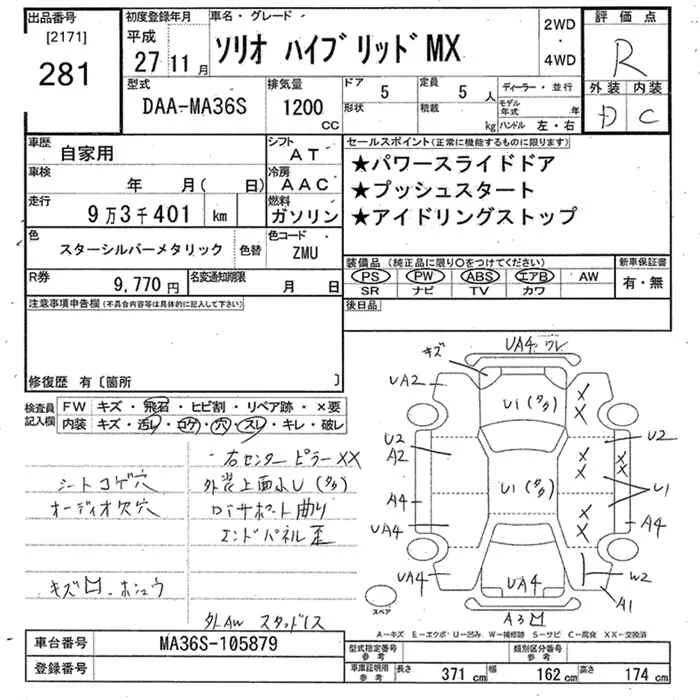 出品番号
[2171]
281
初度登録年月
平成
27 11 月
車名・グレード
ソリオ ハイブリッドMX
2WD
・
4WD
評価点
R
外装 内装
D C
型式
DAA-MA36S
排気量
1200
CC
ドア
5
定員
5 人
形状
積載
kg
ディーラー・並行
モデル年式 年
ハンドル 左・右
車歴
自家用
シフト
AT
車検
年 月( 日)
冷房
AAC
走行
9万3千401 km
燃料
ガソリン
色
スターシルバーメタリック
色替
色コード
ZMU
R券
9,770 円
名変通知期限
月 日
セールスポイント(正常に機能するものに限り)
★パワースライドドア
★プッシュスタート
★アイドリングストップ
装備品 (純正品に限り〇をつけてください)
PS PW ABS エアB AW
SR ナビ TV カワ
新車保証書
有・無
後日品
注意事項申告欄(不具合内容等は具体的に記入して下さい)
修復歴 有〔箇所 〕
検査員
記入欄
FW キズ・飛石・ヒビ割・リペア跡・×要
内装 キズ・汚レ・コゲ・穴・スレ・キレ・破レ
右センターピラーXX
シートコゲ穴
外装上面小U(多々)
オーディオ欠穴
ロアサポート曲り
エンドパネル歪
キズ凹・ホシュウ
外AW スタッドレス
キズ
UA4 ワレ
UA2
U1(多々)
X
X
U2
A2
U2
X
X
U1(多々)
U1
A4
A4
UA4
X
X
W2
UA4
UA4
A1
A3凹
スペア
A-キズ E-エクボ・U-凹み W-補修跡 S-サビ C-腐食 XX-交換済
車台番号
MA36S-105879
登録番号
型式指定番号
参考
類別区分番号
参考
車庫証明用
参考
長さ 371 cm 幅 162 cm 高さ 174 cm